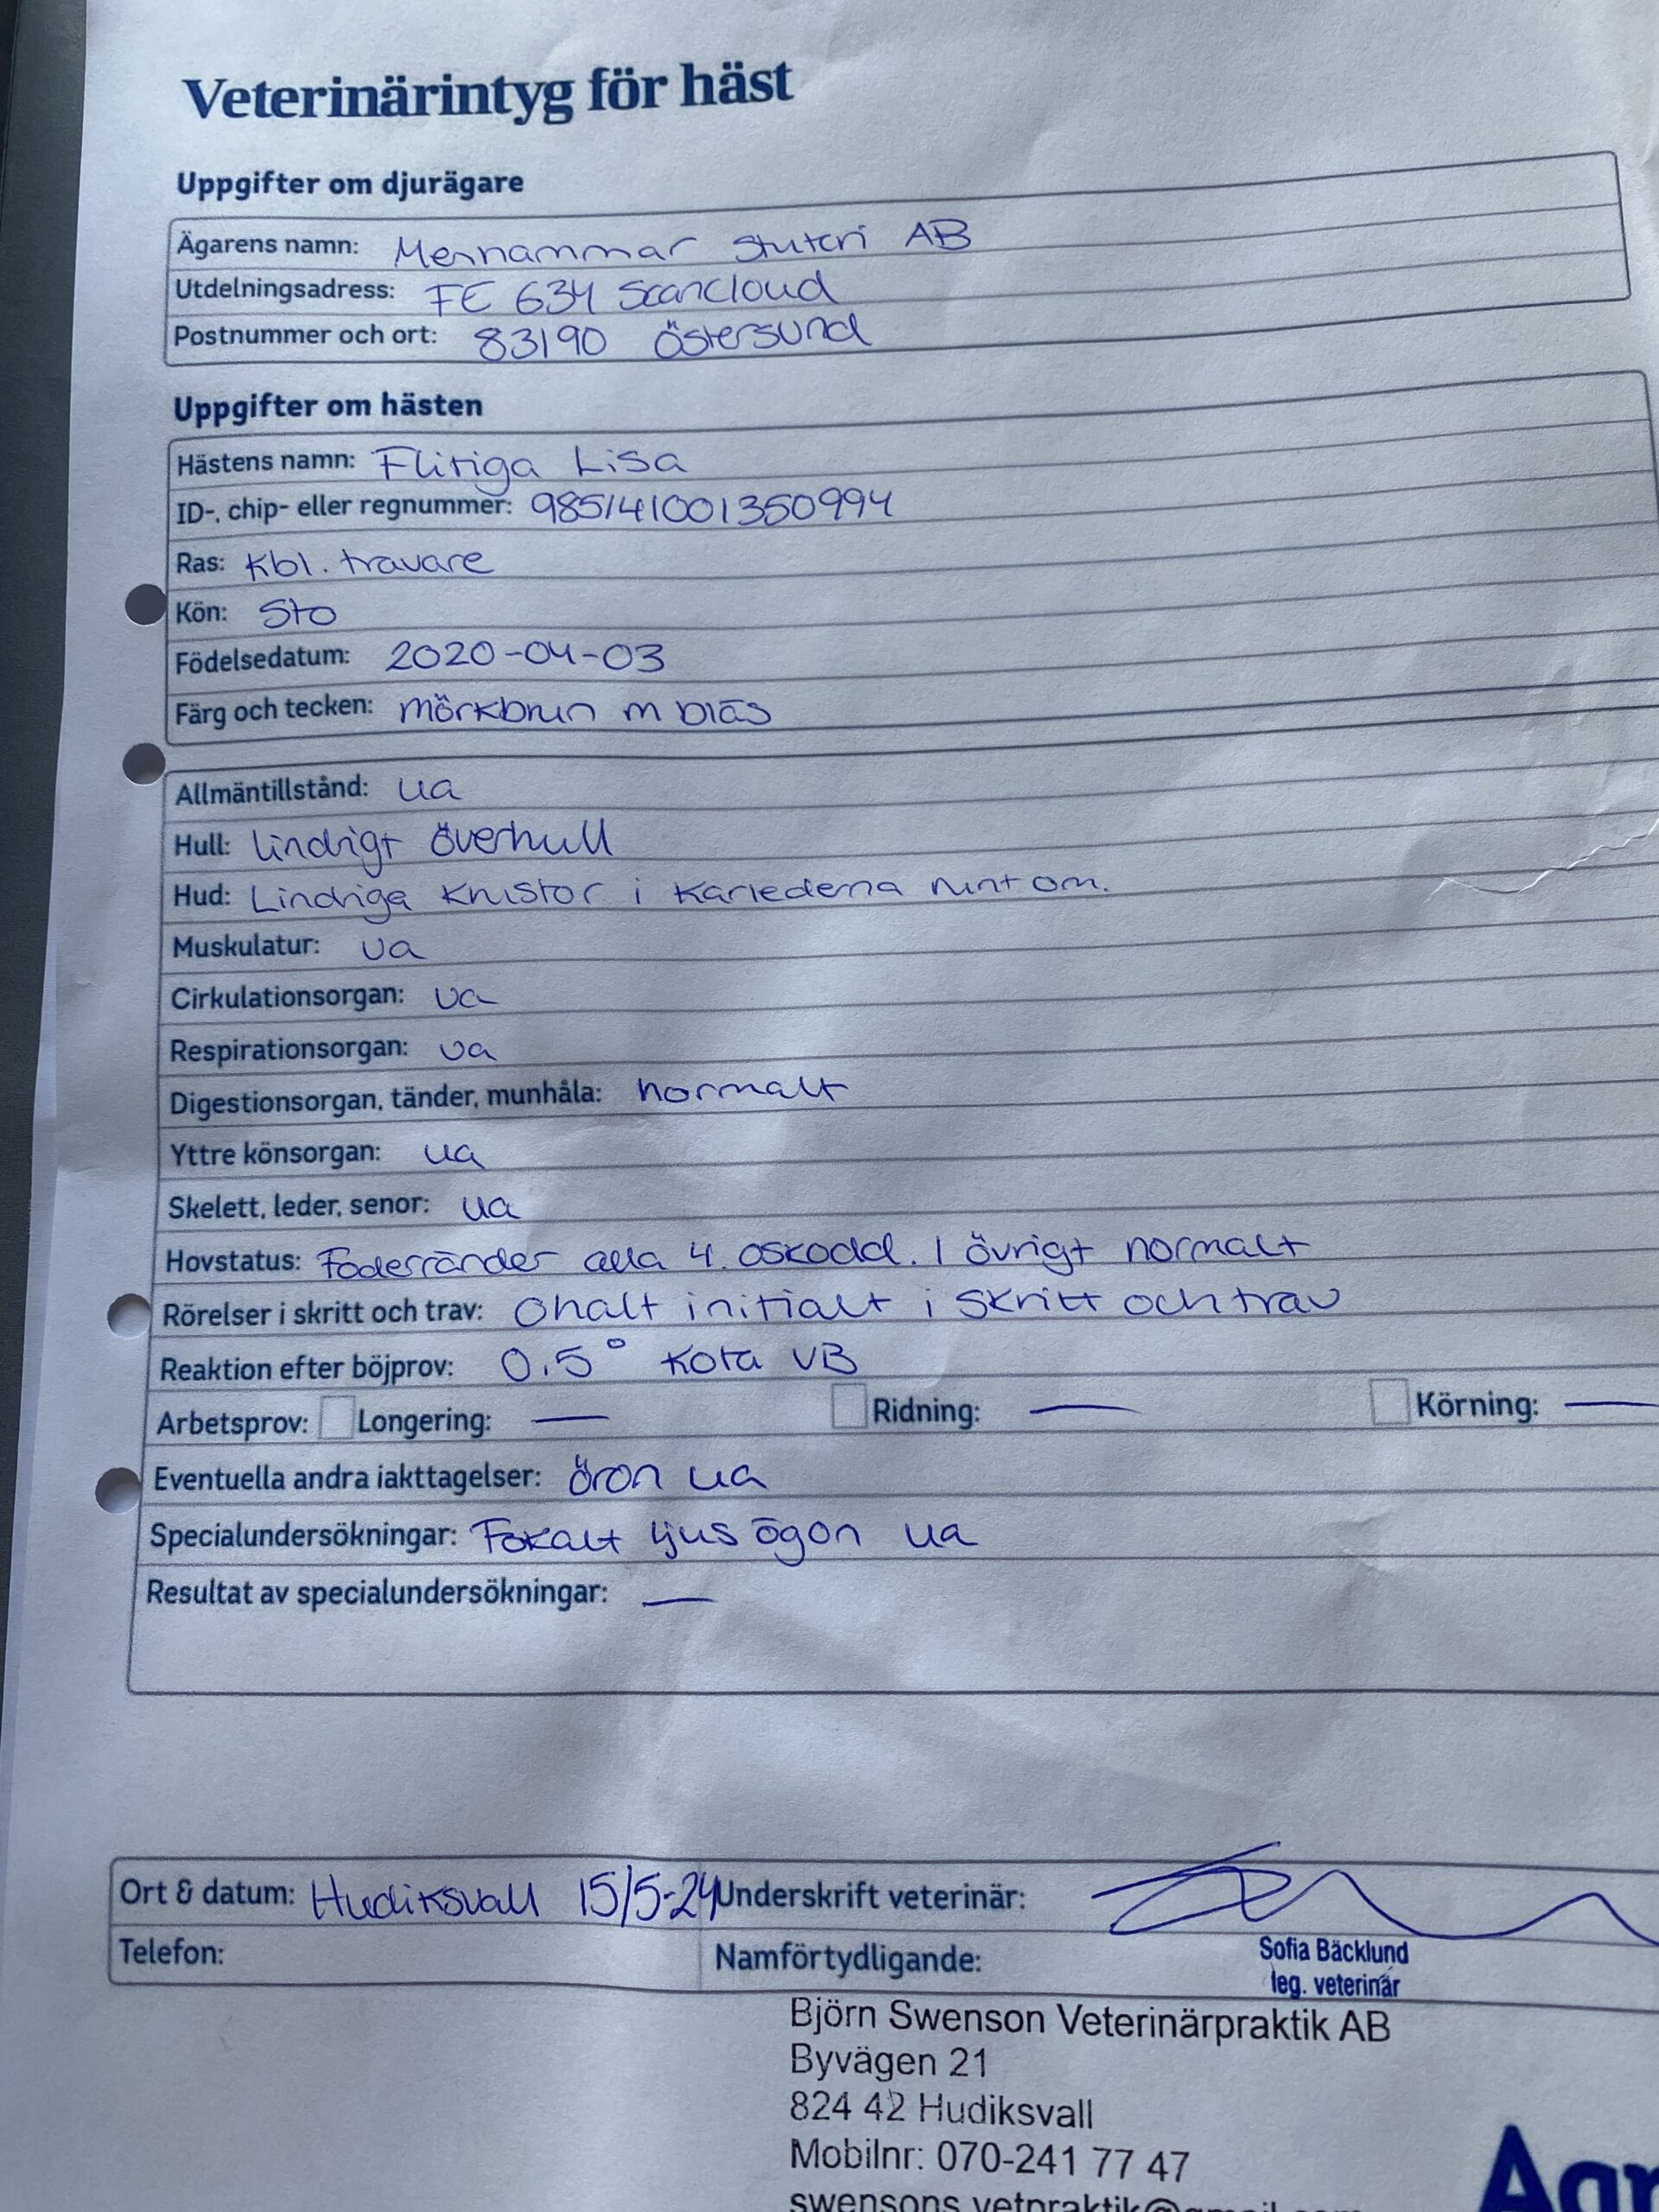 Veterinärintyg för häst
Uppgifter om djurägare
Ägarens namn: Mernammar Stuteri AB
Utdelningsadress: FE 634 Scancloud
Postnummer och ort: 83190 Östersund
Uppgifter om hästen
Hästens namn: Flitiga Lisa
ID-, chip- eller regnummer: 985141001350994
Ras: Kbl. travare
Kön: Sto
Födelsedatum: 2020-04-03
Färg och tecken: mörkbrun m bläs
Allmäntillstånd: ua
Hull: lindrigt överhull
Hud: Lindriga krustor i karlederna runt om.
Muskulatur: ua
Cirkulationsorgan: ua
Respirationsorgan: ua
Digestionsorgan, tänder, munhåla: normalt
Yttre könsorgan: ua
Skelett, leder, senor: ua
Hovstatus: Foderränder alla 4. oskodd. I övrigt normalt
Rörelser i skritt och trav: Ohalt initialt i skritt och trav
Reaktion efter böjprov: 0.5° Kota VB
Arbetsprov: Longering: — Ridning: — Körning: —
Eventuella andra iakttagelser: öron ua
Specialundersökningar: Fokalt ljus ögon ua
Resultat av specialundersökningar: —
Ort & datum: Hudiksvall 15/5-24 Underskrift veterinär:
Telefon: Namförtydligande: Sofia Bäcklund
leg. veterinär
Björn Swenson Veterinärpraktik AB
Byvägen 21
824 42 Hudiksvall
Mobilnr: 070-241 77 47
swensons.vetpraktik@gmail.com
Agr